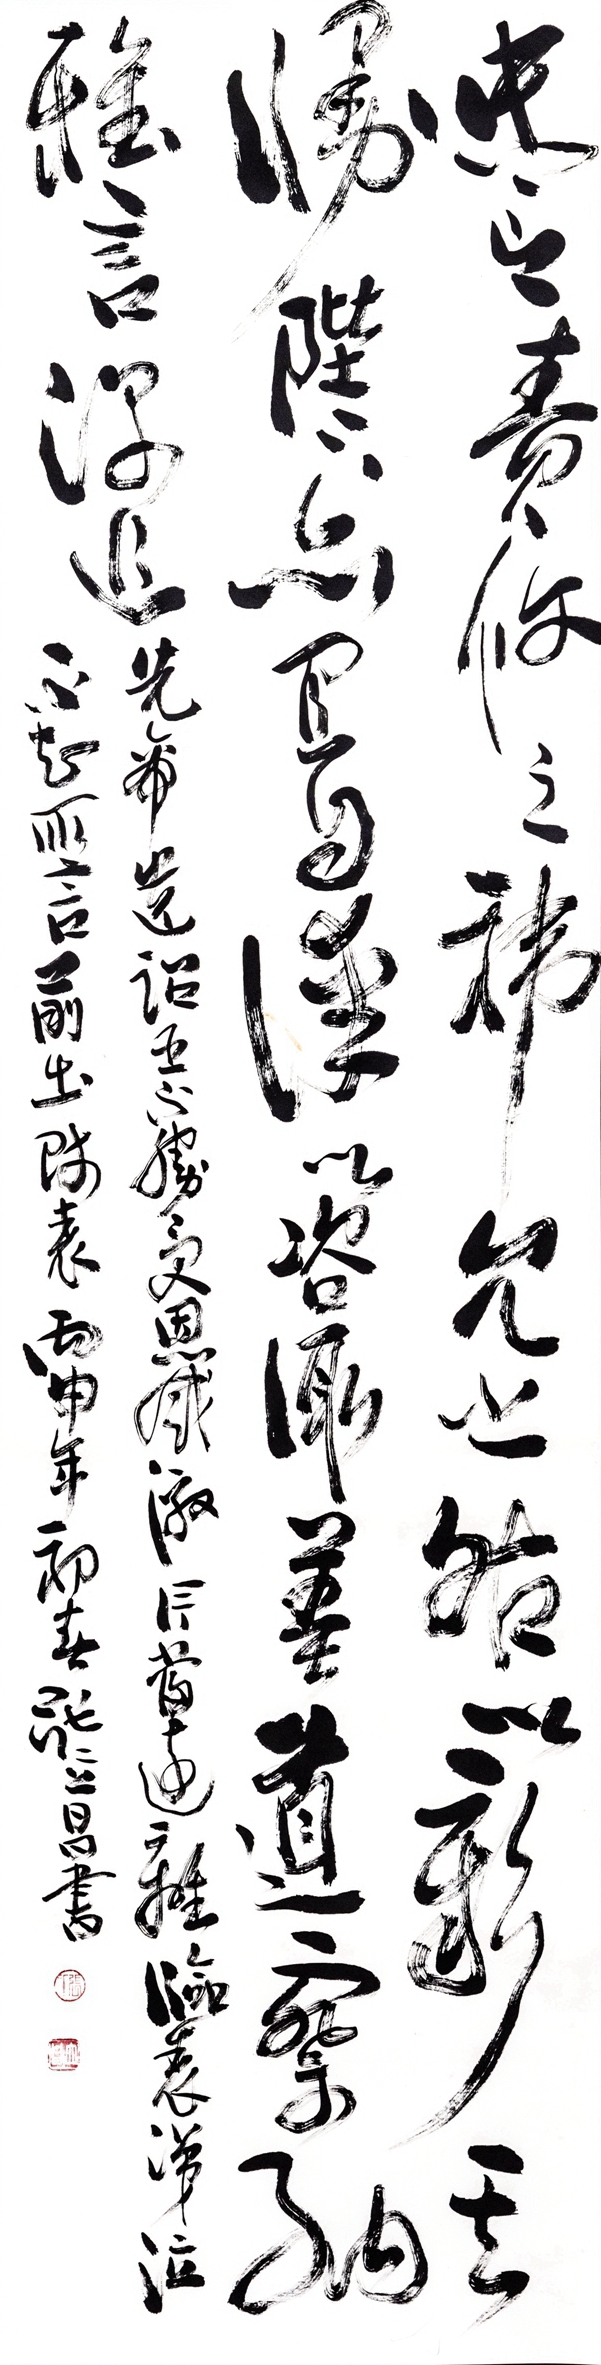 忠言責攸之禕允之咎以彰其
慢陛下亦宜自謀以咨諏善道察納
雅言深追
先帝遺詔臣不勝受恩感激今當遠離臨表涕泣
不知所言前出師表丙申年初春張昌書